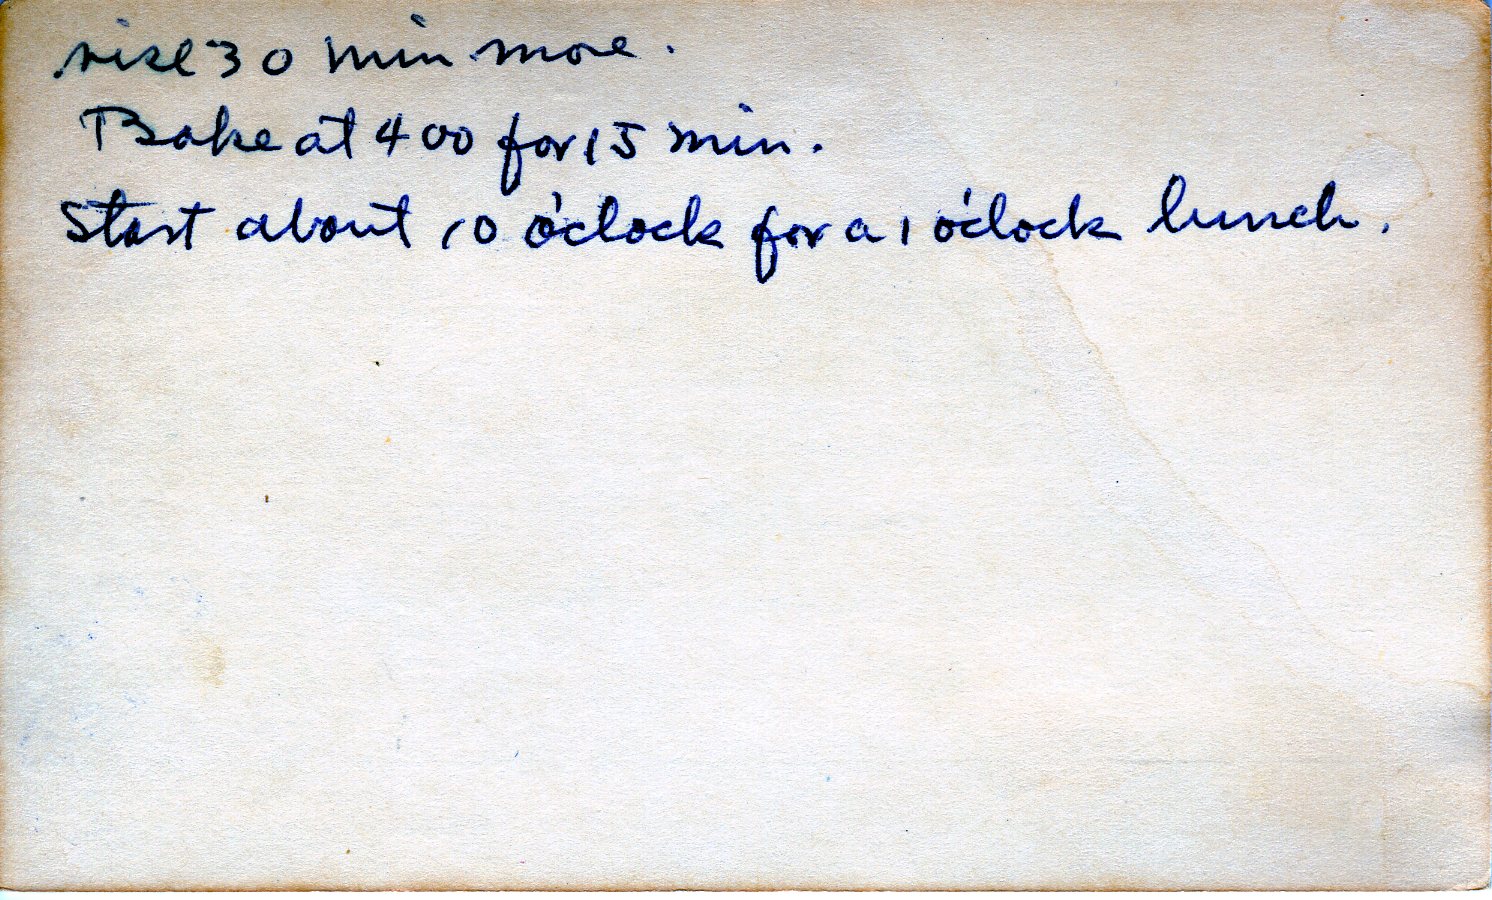 rise 30 min more.
Bake at 400 for 15 min.
Start about 10 o'clock for a 1 o'clock lunch.